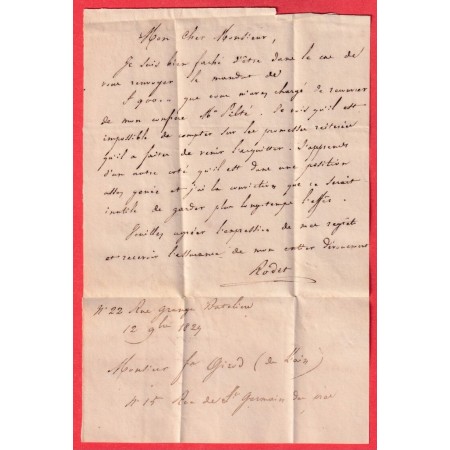 Mon cher Monsieur,
Je suis bien faché d'être dans le cas de
vous renvoyer le mandat de
que vous m'avez chargé de recouvrer
de mon confrère Mr Pilté. Je vois qu'il est
impossible de compter sur les promesses réitérées
qu'il a faites de venir l'acquitter. J'apprends
d'un autre coté qu'il est dans une position
assez genée et j'ai la conviction que ce serait
inutile de garder plus longtemps l'effet.
Veuillez agréer l'expression de mes regrets
et recevoir l'assurance de mon entier dévouement
Rodet
N° 22 Rue Grange Batelière
12 9bre 1829
Monsieur Girod (de l'ain)
N° 15 Rue de St Germain des